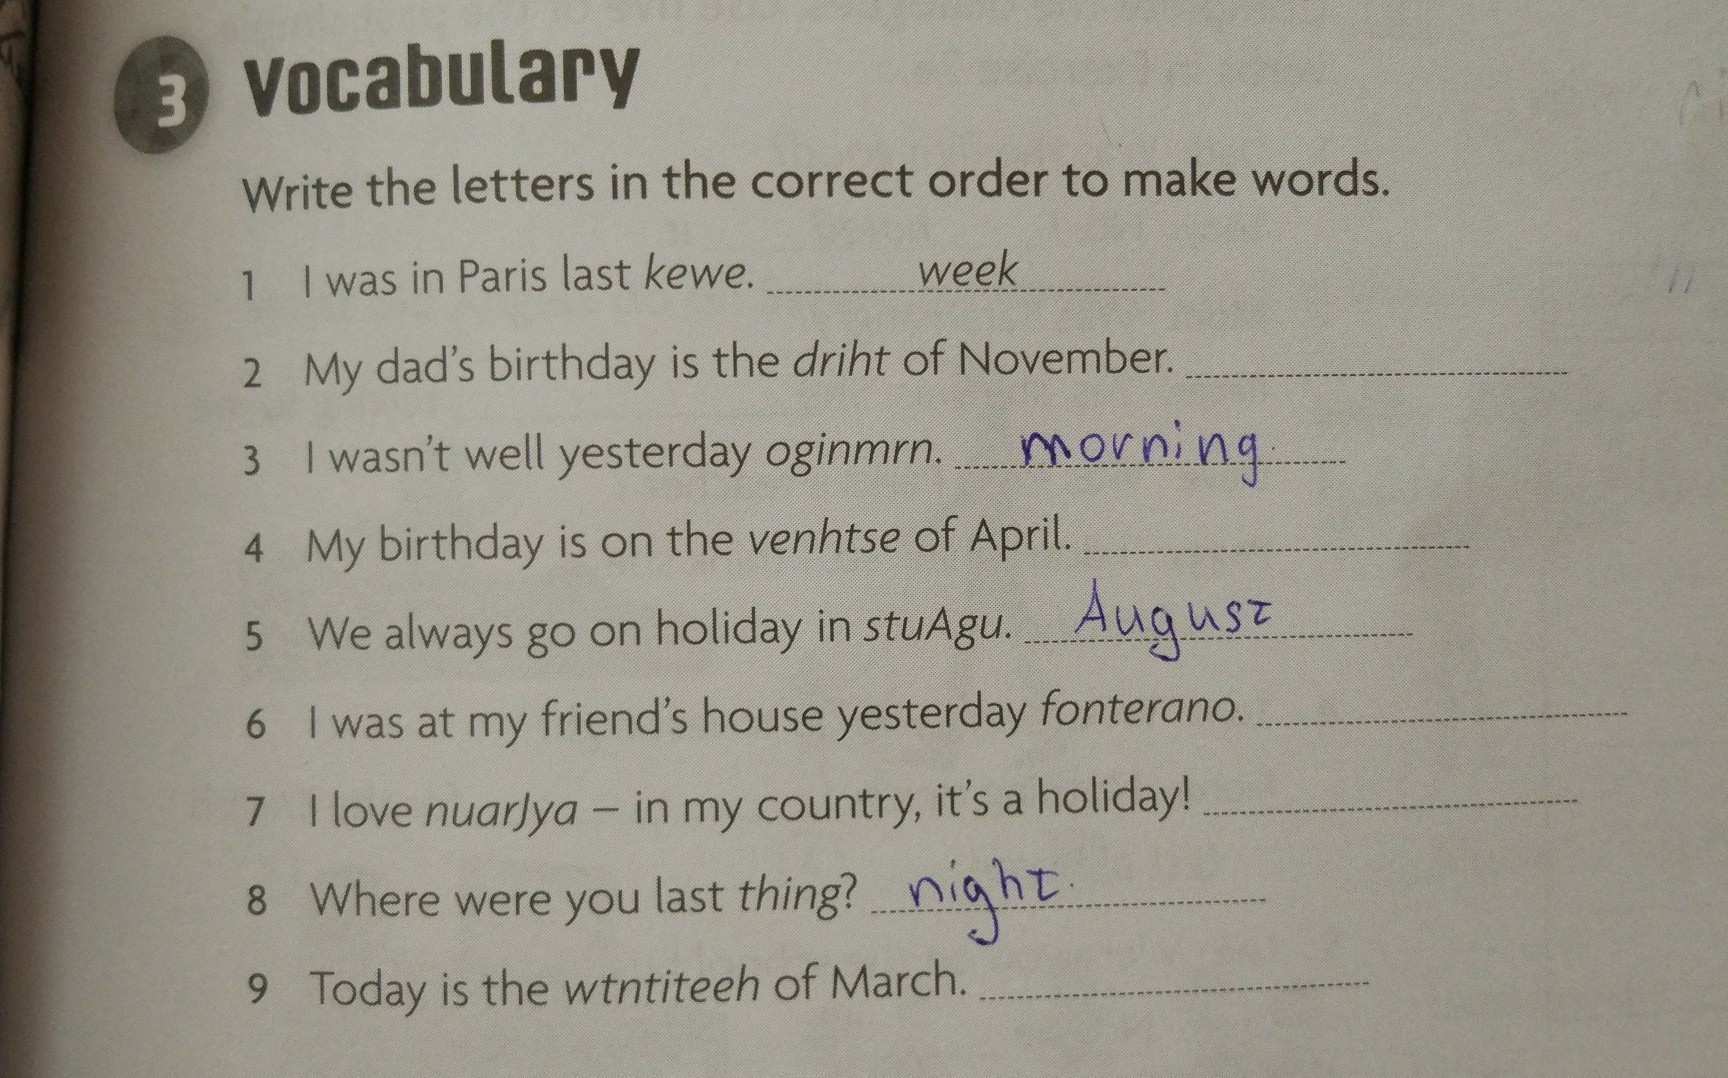 3 Vocabulary
Write the letters in the correct order to make words.
1 I was in Paris last kewe. week
2 My dad's birthday is the driht of November.
3 I wasn't well yesterday oginmrn. morning.
4 My birthday is on the venhtse of April.
5 We always go on holiday in stuAgu. August
6 I was at my friend's house yesterday fonterano.
7 I love nuarJya – in my country, it's a holiday!
8 Where were you last thing? night.
9 Today is the wtntiteeh of March.